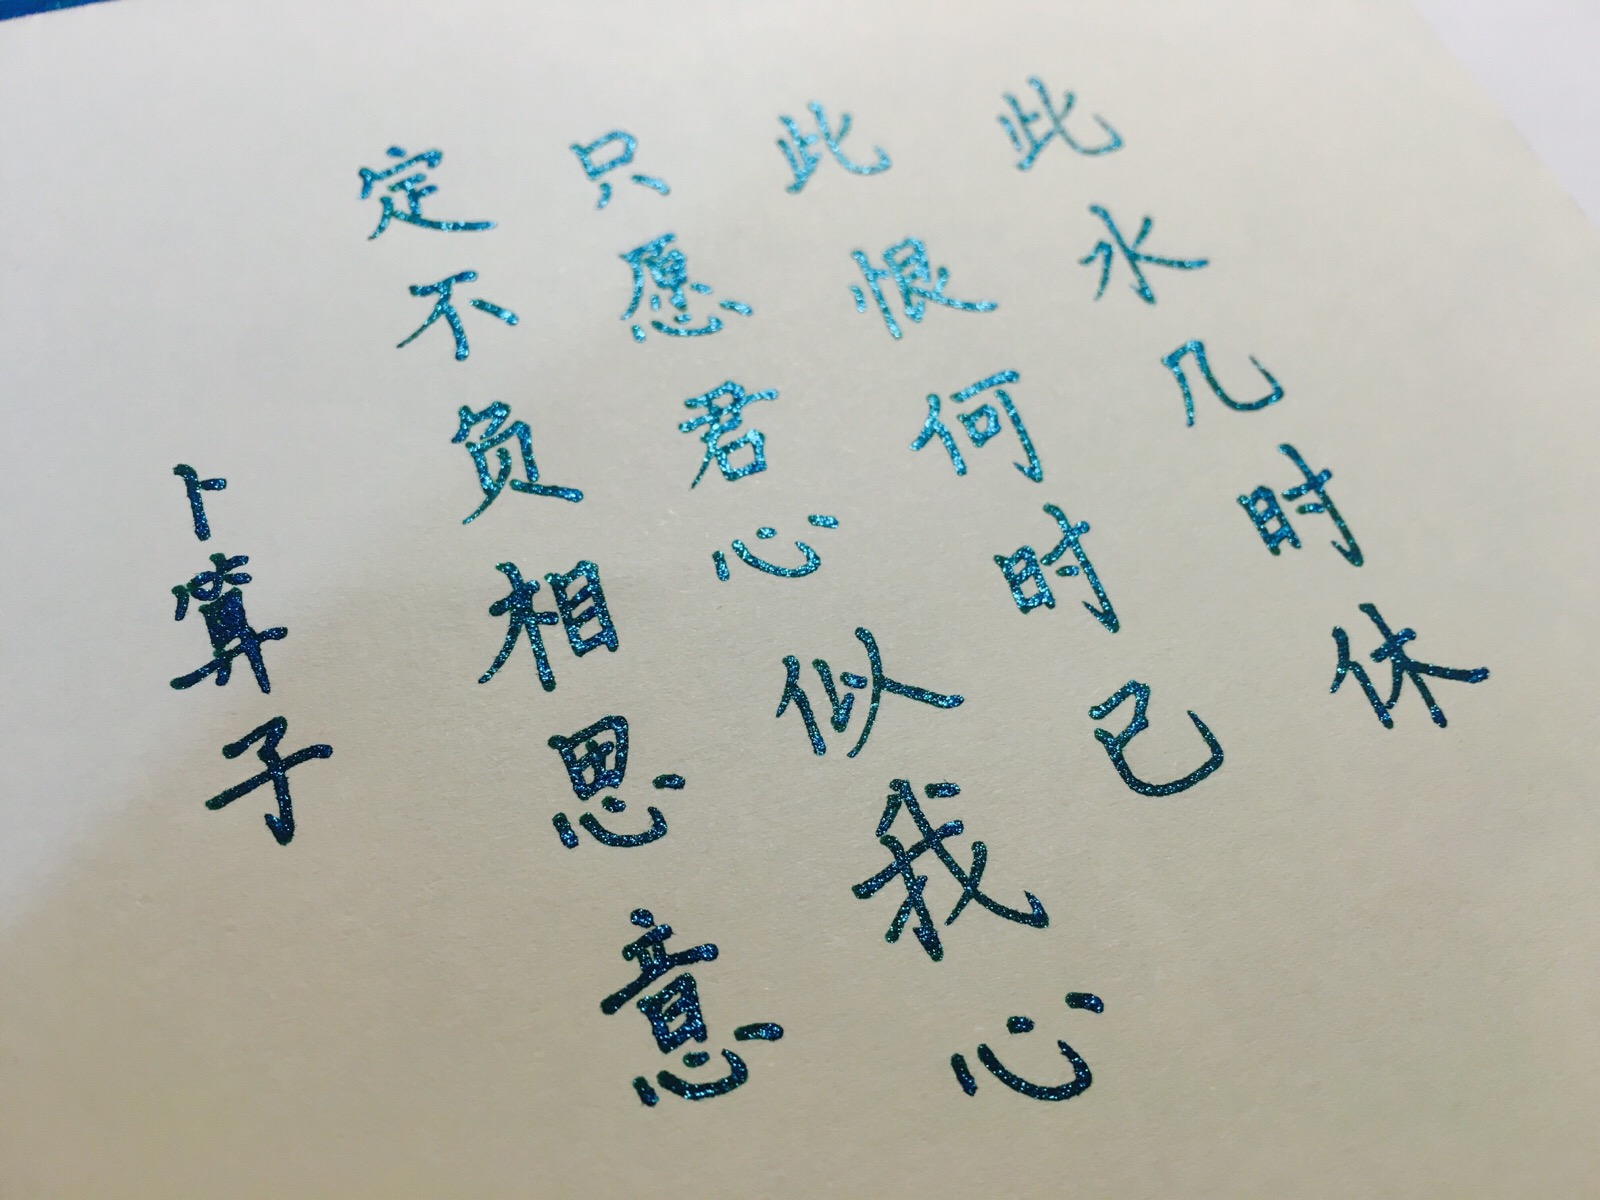 此水几时休
此恨何时已
只愿君心似我心
定不负相思意
卜算子